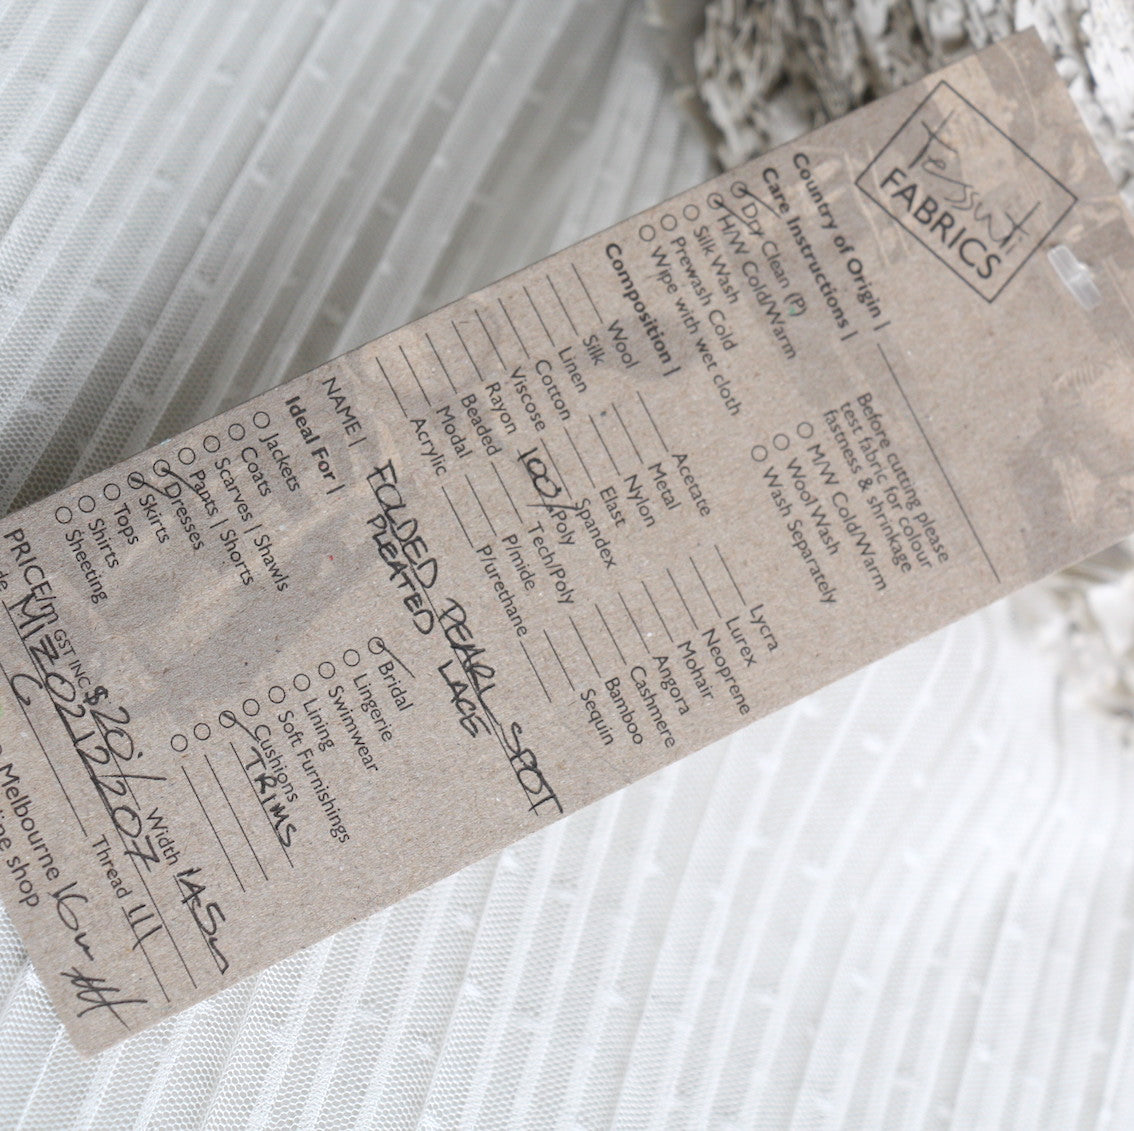 Tessuti
FABRICS
Country of Origin |
Care Instructions |
Dry Clean (P)
H/W Cold/Warm
Silk Wash
Prewash Cold
Wipe with wet cloth
Before cutting please
test fabric for colour
fastness & shrinkage
M/W Cold/Warm
Wool Wash
Wash Separately
Composition |
Wool
Silk
Linen
Cotton
Viscose
Rayon
Beaded
Modal
Acrylic
Acetate
Metal
Nylon
Elast
Spandex
100% Poly
Tech/Poly
P/mide
P/urethane
Lycra
Lurex
Neoprene
Mohair
Angora
Cashmere
Bamboo
Sequin
NAME | FOLDED PEARL SPOT
PLEATED LACE
Ideal For |
Jackets
Coats
Scarves | Shawls
Pants | Shorts
Dresses
Skirts
Tops
Shirts
Sheeting
Bridal
Lingerie
Swimwear
Lining
Soft Furnishings
Cushions
TRIMS
PRICE/m GST INC $20./ Width 145
Thread 111
Melbourne 16m
shop